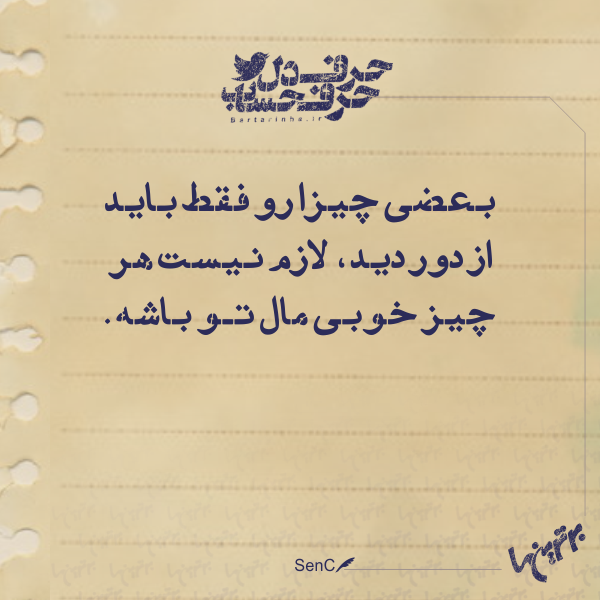 حرف دل
حرف حساب
Bartarinha.ir
بعضی چیزا رو فقط باید
از دور دید، لازم نیست هر
چیز خوبی مال تو باشه.
SenC
برترین‌ها